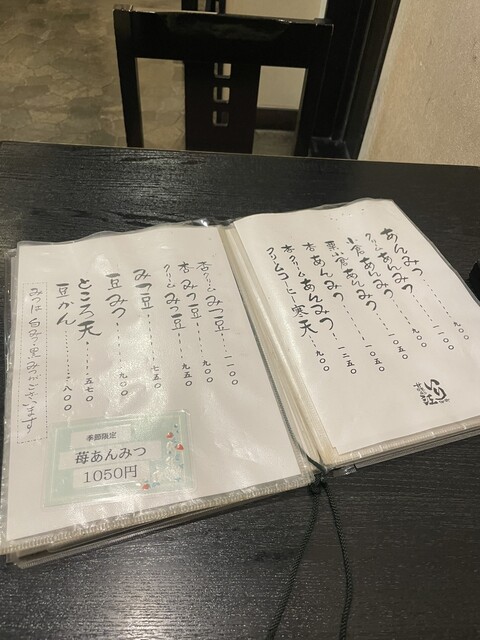 あんみつ……九〇〇
クリームあんみつ
小倉あんみつ……一〇五〇
栗小倉あんみつ
杏クリームあんみつ
クリームコーヒー寒天……九〇〇
いり江
杏クリームみつ豆……一一〇〇
杏みつ豆……九〇〇
クリームみつ豆……九五〇
みつ豆……七五〇
豆みつ……九〇〇
ところ天……五七〇
豆かん……八〇〇
みつは白みつ・黒みつがございます
季節限定
苺あんみつ
1050円